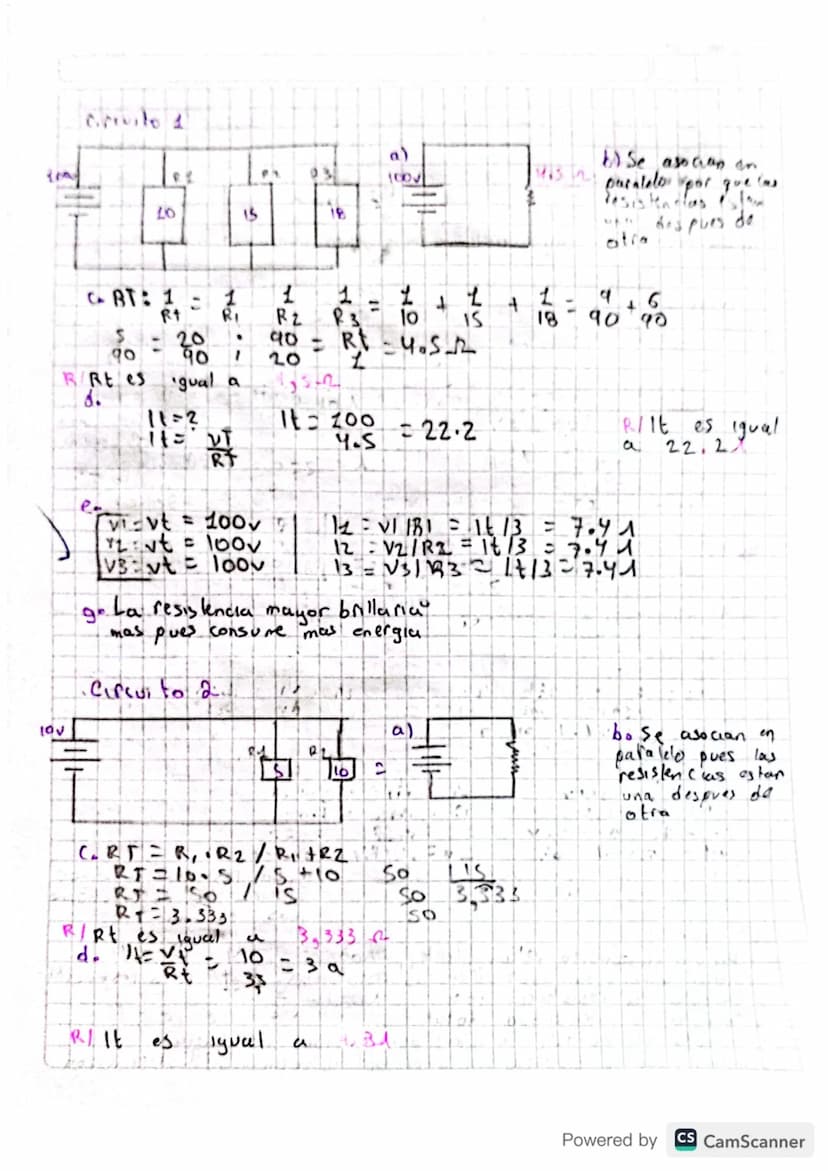 Circuito 1
a)
R2
R3
100v
10
15
18
=
b) Se asocian en
paralelo por que las
resistencias estan
una despues de
otra
C. RT: 1/Rt = 1/R1 1/R2 1/R3 = 1/10 + 1/15 + 1/18 = 9/90 + 6/90
5/90 = 20/90 ; 90/20 = Rt/1 = 4.5 Ω
R/ Rt es igual a 4,5 Ω
d.
It = ?
It = VT/RT
It = 100/4.5 = 22.2
R/ It es igual
a 22.2
e.
V1 = vt = 100v
V2 = vt = 100v
V3 = vt = 100v
I1 = V1/R1 = It/3 = 7.41
I2 = V2/R2 = It/3 = 7.41
I3 = V3/R3 = It/3 = 7.41
g. La resistencia mayor brillaria
mas pues consume mas energia
Circuito 2.
10v
R1
R2
5
10
=
a)
b. Se asocian en
paralelo pues las
resistencias estan
una despues de
otra
C. RT = R1 . R2 / R1 + R2
RT = 10 . 5 / 5 + 10
RT = 50 / 15
RT = 3.333
50 15
50 3,333
50
R/ Rt es igual a 3,333 Ω
d. It = Vt/Rt = 10/3,3 = 3 a
R/ It es igual a
Powered by CS CamScanner